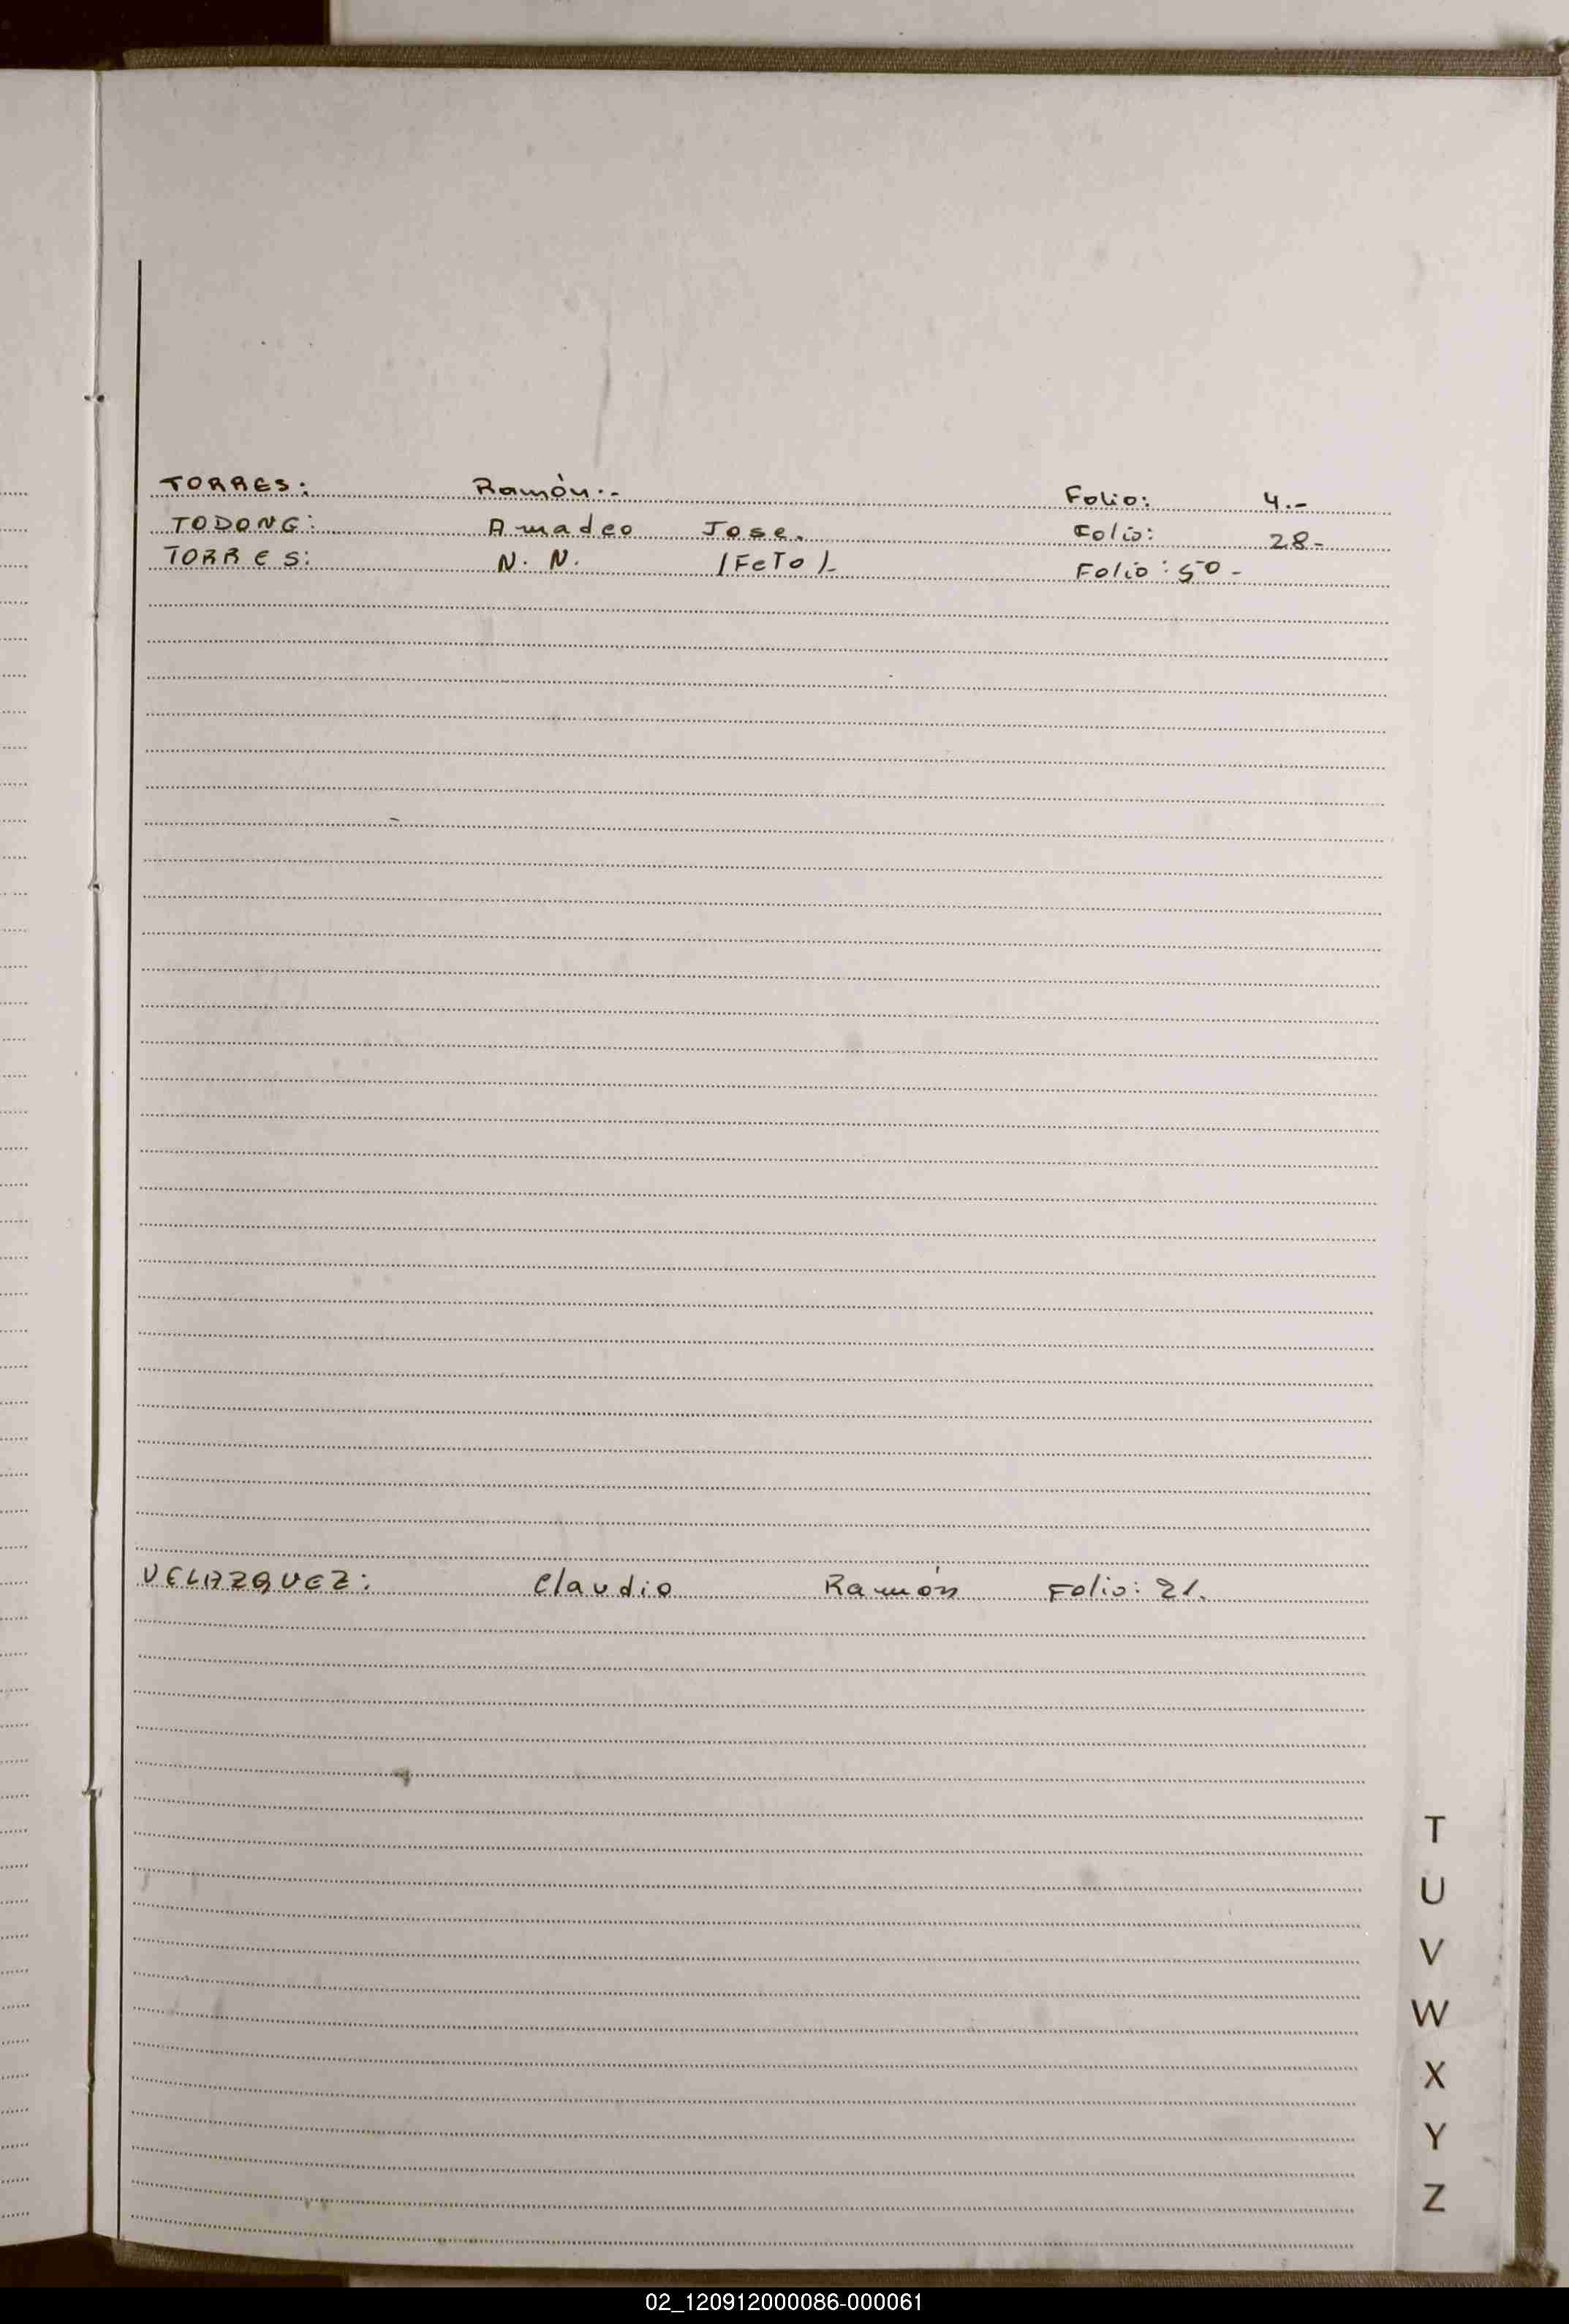 TORRES: Ramón.- Folio: 4.-
TODONG: Amadeo Jose. Folio: 28-
TORRES: N. N. (FeTo)- Folio: 50-
VELAZQUEZ: Claudio Ramón Folio: 21.
T
U
V
W
X
Y
Z
02_120912000086-000061